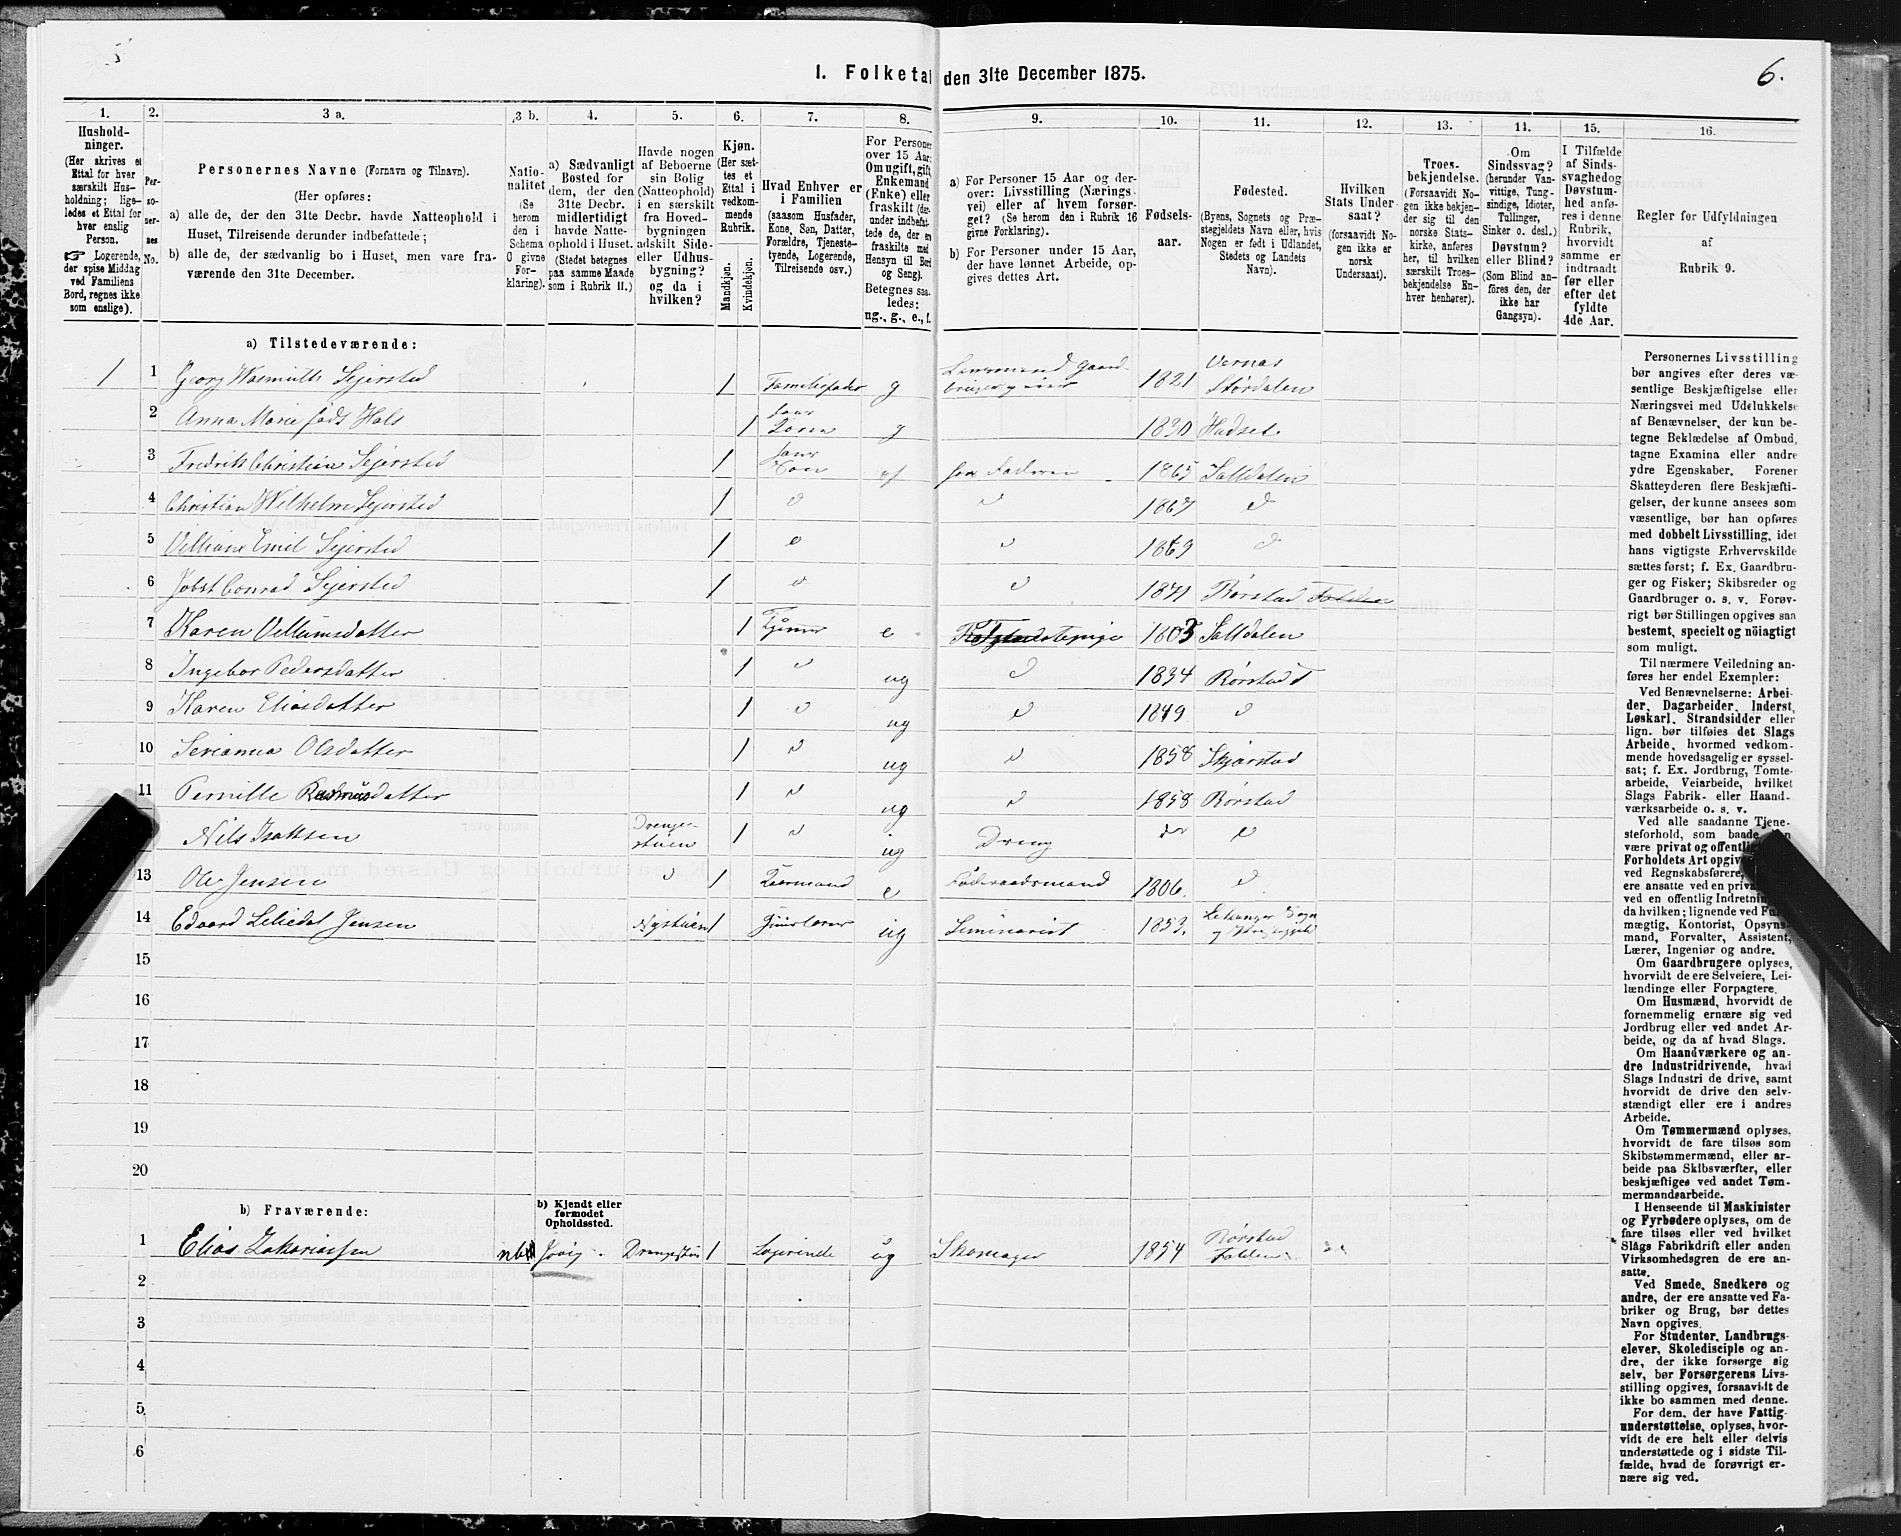 6.
I. Folketal den 31te December 1875.
1.
Hushold-
ninger.
(Her skrives et
Ettal for hver
særskilt Hus-
holdning; lige-
ledes et Ettal for
hver enslig
Person.
☞ Logerende,
der spise Middag
ved Familiens
Bord, regnes ikke
som enslige).
2.
Per-
so-
ner-
nes
No.
3 a.
Personernes Navne (Fornavn og Tilnavn).
(Her opføres:
a) alle de, der den 31te Decbr. havde Natteophold i
Huset, Tilreisende derunder indbefattede;
b) alle de, der sædvanlig bo i Huset, men vare fra-
værende den 31te December.
3 b.
Natio-
nalitet
(Se
herom
den i
Schema
O givne
For-
klaring).
4.
a) Sædvanligt
Bosted for
dem, der den
31te Decbr.
midlertidigt
havde Natte-
ophold i Huset.
(Stedet betegnes
paa samme Maade
som i Rubrik 11.)
5.
Havde nogen
af Beboerne
sin Bolig
(Natteophold)
i en særskilt
fra Hoved-
bygningen
adskilt Side-
eller Udhus-
bygning?
og da i
hvilken?
6.
Kjøn.
(Her sæt-
tes et
Ettal i
vedkom-
mende
Rubrik.
Mandkjøn.
Kvindekjøn.
7.
Hvad Enhver er
i Familien
(saasom Husfader,
Kone, Søn, Datter,
Forældre, Tjeneste-
tyende, Logerende,
Tilreisende osv.)
8.
For Personer
over 15 Aar:
Om ugift, gift,
Enkemand
(Enke) eller
fraskilt
Betegnes saa-
ledes:
ug., g., e., f.
9.
a) For Personer 15 Aar og der-
over: Livsstilling (Nærings-
vei) eller af hvem forsør-
get? (Se herom den i Rubrik 16
givne Forklaring).
b) For Personer under 15 Aar,
der have lønnet Arbeide, op-
gives dettes Art.
10.
Fødsels-
aar.
11.
Fødested.
(Byens, Sognets og Præ-
stegjeldets Navn eller, hvis
Nogen er født i Udlandet,
Stedets og Landets
Navn).
12.
Hvilken
Stats Under-
saat?
(forsaavidt No-
gen ikke er
norsk
Undersaat).
13.
Troes-
bekjendelse.
(Forsaavidt No-
gen ikke bekjen-
der sig til den
norske Stats-
kirke, anføres
her, til hvilken
særskilt Troes-
bekjendelse En-
hver henhører).
14.
Om
Sindssvag?
(herunder Van-
vittige, Tung-
sindige, Idioter,
Tullinger,
Sinker o. desl.)
Døvstum?
eller Blind?
(Som Blind an-
føres den, der
ikke har
Gangsyn).
15.
I Tilfælde
af Sinds-
svaghed og
Døvstum-
hed anfø-
res i denne
Rubrik,
hvorvidt
samme er
indtraadt
før eller
efter det
fyldte
4de Aar.
16.
Regler for Udfyldningen
af
Rubrik 9.
a) Tilstedeværende:
1 1 Georg Wasmuth Sejersted 1 Familiefader g Lensmand Gaard-
bruger 1821 Vernæs
Størdalen
2 Anna Marie føds Hals 1 Kone g 1830 Hadsel
3 Fredrik Christian Sejersted 1 Søn 1865 Saltdalen
4 Christian Wilhelm Sejersted 1 1867
5 Villiam Emil Sejersted 1 1869
6 Jobst Conrad Sejersted 1 1871 Rørstad Folden
7 Karen Villumsdatter 1 e 1803 Saltdalen
8 Ingebor Pedersdatter 1 ug 1834 Rørstad
9 Karen Eliasdatter 1 ug 1849
10 Serianna Olsdatter 1 ug 1858 Skjerstad
11 Pernille Rasmusdatter 1 ug 1858 Rørstad
Nils Isaksen Drenge-
stuen 1 ug Dreng
13 Ole Jensen 1 Kaarmand e Føderaadsmand 1806.
14 Edvard Jensen Nystuen 1 Huuslærer ug Seminarist 1853.
15
16
17
18
19
20
b) Fraværende:
b) Kjendt eller
formodet
Opholdssted.
1 Elias Zakariassen nb Drengestue 1 Logerende ug Skomager 1854 Rørstad
Folden
2
3
4
5
6
Personernes Livsstilling
bør angives efter deres væ-
sentlige Beskjæftigelse eller
Næringsvei med Udelukkelse
af Benævnelser, der kun be-
tegne Beklædelse af Ombud,
tagne Examina eller andre
ydre Egenskaber. Forener
Skatteyderen flere Beskjæfti-
gelser, der kunne ansees som
væsentlige, bør han opføres
med dobbelt Livsstilling, idet
hans vigtigste Erhvervskilde
sættes først; f. Ex. Gaardbru-
ger og Fisker; Skibsreder og
Gaardbruger o. s. v. Forøv-
rigt bør Stillingen opgives saa
bestemt, specielt og nøiagtigt
som muligt.
Til nærmere Veiledning an-
føres her endel Exempler:
Ved Benævnelserne: Arbei-
der, Dagarbeider, Inderst,
Løskarl, Strandsidder eller
lign. bør tilføies det Slags
Arbeide, hvormed vedkom-
mende hovedsagelig er syssel-
sat; f. Ex. Jordbrug, Tomte-
arbeide, Veiarbeide, hvilket
Slags Fabrik- eller Haand-
værksarbeide o. s. v.
Ved alle saadanne Tjene-
steforhold, som baade
være privat og offentlig
Forholdets Art opgives
ved Regnskabsførere,
ere ansatte ved en privat
ved en offentlig Indretning
da hvilken; lignende ved Fuld-
mægtig, Kontorist, Opsyns-
mand, Forvalter, Assistent,
Lærer, Ingeniør og andre.
Om Gaardbrugere oplyses,
hvorvidt de ere Selveiere, Lei-
lændinge eller Forpagtere.
Om Husmænd, hvorvidt de
fornemmelig ernære sig ved
Jordbrug eller ved andet Ar-
beide, og da af hvad Slags.
Om Haandværkere og an-
dre Industridrivende, hvad
Slags Industri de drive, samt
hvorvidt de drive den selv-
stændigt eller ere i andres
Arbeide.
Om Tømmermænd oplyses,
hvorvidt de fare tilsøs som
Skibstømmermænd, eller ar-
beide paa Skibsværfter, eller
beskjæftiges ved andet Tøm-
mermandsarbeide.
I Henseende til Maskinister
og Fyrbødere oplyses, om de
fare tilsøs eller ved hvilket
Slags Fabrikdrift eller anden
Virksomhedsgren de ere an-
satte.
Ved Smede, Snedkere og
andre, der ere ansatte ved Fa-
briker og Brug, bør dettes
Navn opgives.
For Studenter, Landbrugs-
elever, Skoledisciple og an-
dre, der ikke forsørge sig
selv, bør Forsørgerens Livs-
stilling opgives, forsaavidt de
ikke bo sammen med denne.
For dem, der have Fattig-
understøttelse, oplyses, hvor-
vidt de ere helt eller delvis
understøttede og i sidste Til-
fælde, hvad de forøvrigt er-
nære sig ved.